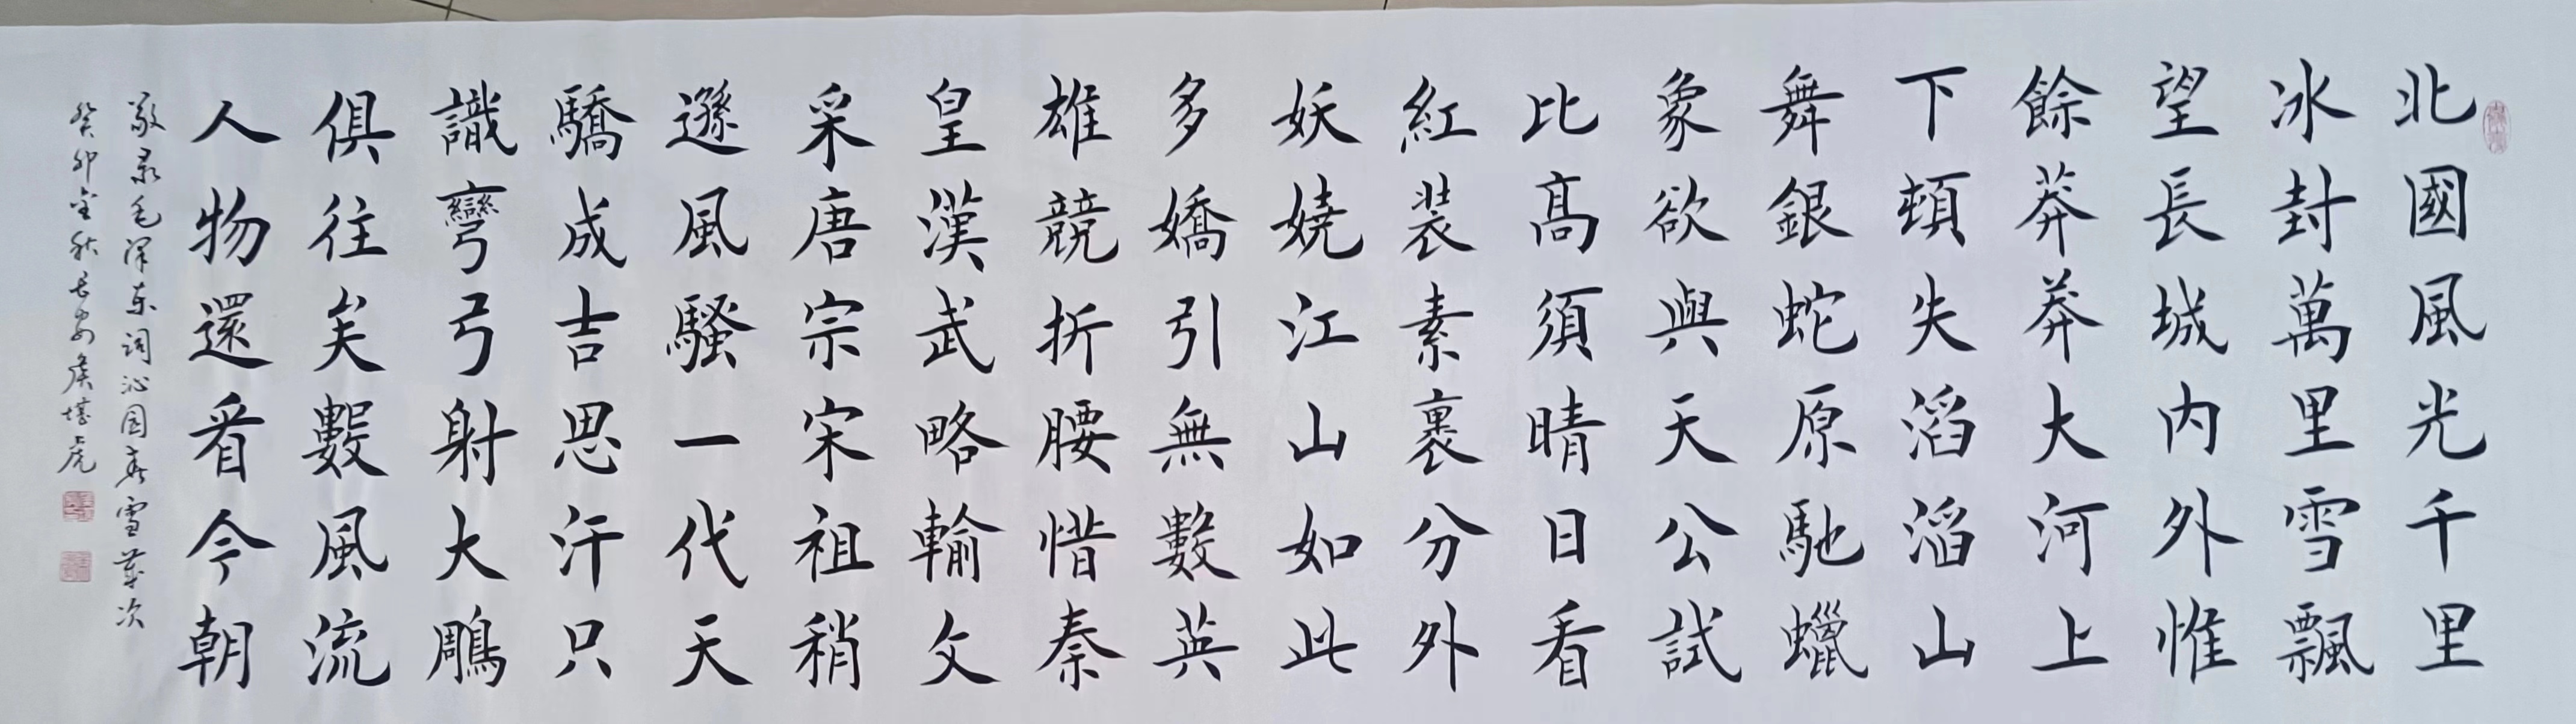 北國風光千里
冰封萬里雪飄
望長城内外惟
餘莽莽大河上
下頓失滔滔山
舞銀蛇原馳蠟
象欲與天公試
比髙須晴日看
紅装素裹分外
妖嬈江山如此
多嬌引無數英
雄競折腰惜秦
皇漢武略輸文
采唐宗宋祖稍
遜風騷一代天
驕成吉思汗只
識彎弓射大鵰
俱往矣數風流
人物還看今朝
敬录毛泽东词沁园春雪歲次
癸卯金秋长安侯堪虎